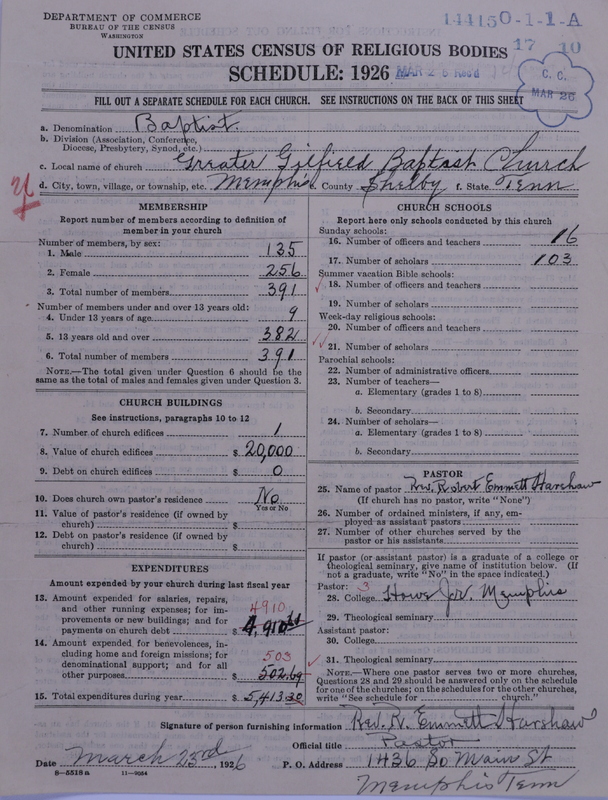 DEPARTMENT OF COMMERCE
BUREAU OF THE CENSUS
WASHINGTON
144150-1-1-A
17 10
UNITED STATES CENSUS OF RELIGIOUS BODIES
SCHEDULE: 1926
MAR 26 Rec'd
C. C.
MAR 26
FILL OUT A SEPARATE SCHEDULE FOR EACH CHURCH. SEE INSTRUCTIONS ON THE BACK OF THIS SHEET
a. Denomination Baptist.
b. Division (Association, Conference, Diocese, Presbytery, Synod, etc.)
c. Local name of church Greater Gilfield Baptist Church
d. City, town, village, or township, etc. Memphis e. County Shelby f. State Tenn
MEMBERSHIP
Report number of members according to definition of
member in your church
Number of members, by sex:
1. Male 135
2. Female 256
3. Total number of members 391
Number of members under and over 13 years old:
4. Under 13 years of age 9
5. 13 years old and over 382
6. Total number of members 391
NOTE.—The total given under Question 6 should be
same as the total of males and females given under Question 3.
CHURCH BUILDINGS
See instructions, paragraphs 10 to 12
7. Number of church edifices 1
8. Value of church edifices $ 20,000
9. Debt on church edifices $ 0
10. Does church own pastor's residence No
Yes or No
11. Value of pastor's residence (if owned by
church) $
12. Debt on pastor's residence (if owned by
church) $
EXPENDITURES
Amount expended by church during last fiscal year
13. Amount expended for salaries, repairs,
and other running expenses; for im-
provements or new buildings; and for
payments on church debt $ 4,910
4910
14. Amount expended for benevolences, in-
cluding home and foreign missions; for
denominational support; and for all
other purposes $ 502.69
503
15. Total expenditures during year $ 5,413.30
CHURCH SCHOOLS
Report here only schools conducted by this church
Sunday schools:
16. Number of officers and teachers 16
17. Number of scholars 103
Summer vacation Bible schools:
18. Number of officers and teachers
19. Number of scholars
Week-day religious schools:
20. Number of officers and teachers
21. Number of scholars
Parochial schools:
22. Number of administrative officers
23. Number of teachers—
a. Elementary (grades 1 to 8)
b. Secondary
24. Number of scholars—
a. Elementary (grades 1 to 8)
b. Secondary
PASTOR
25. Name of pastor Rev. Robert Emmett Harshaw
(If church has no pastor, write "None")
26. Number of ordained ministers, if any, em-
ployed as assistant pastors
27. Number of other churches served by the
pastor or his assistants
If pastor (or assistant pastor) is a graduate of a college or
theological seminary, give name of institution below. (If
not a graduate, write "No" in the space indicated.)
Pastor: 3
28. College Howe Jr. Memphis
29. Theological seminary
Assistant pastor:
30. College
31. Theological seminary
NOTE.—Where one pastor serves two or more churches,
Questions 28 and 29 should be answered only on the schedule
for one of the churches; on the schedules for the other churches,
write "See schedule for church."
Signature of person furnishing information Rev. R. Emmett Harshaw
Official title Pastor
Date March 23rd, 1926 P. O. Address 1436 So Main St
8—5518a 11—9054
Memphis Tenn